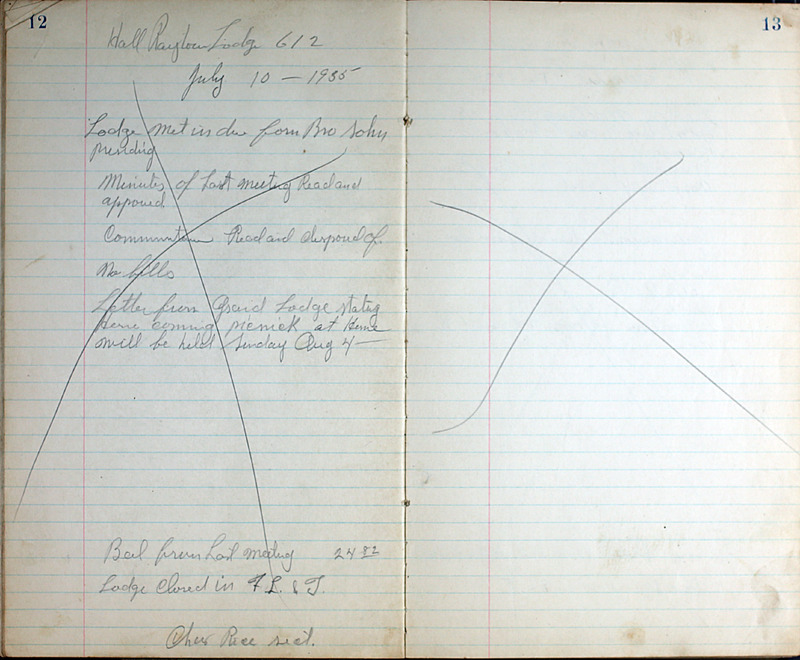 12
Hall Raytown Lodge 612
July 10 — 1935
Lodge Met in due form Bro John
presiding
Minutes of Last meeting Read and
appoved
Read and disposed of
No bills
Letter from Grand Lodge stating
Home coming picnick at Home
will be held Sunday Aug 4 —
Bal from Last meeting 24 82
Lodge Closed in F. L. & T.
Chas Rice sect.
13